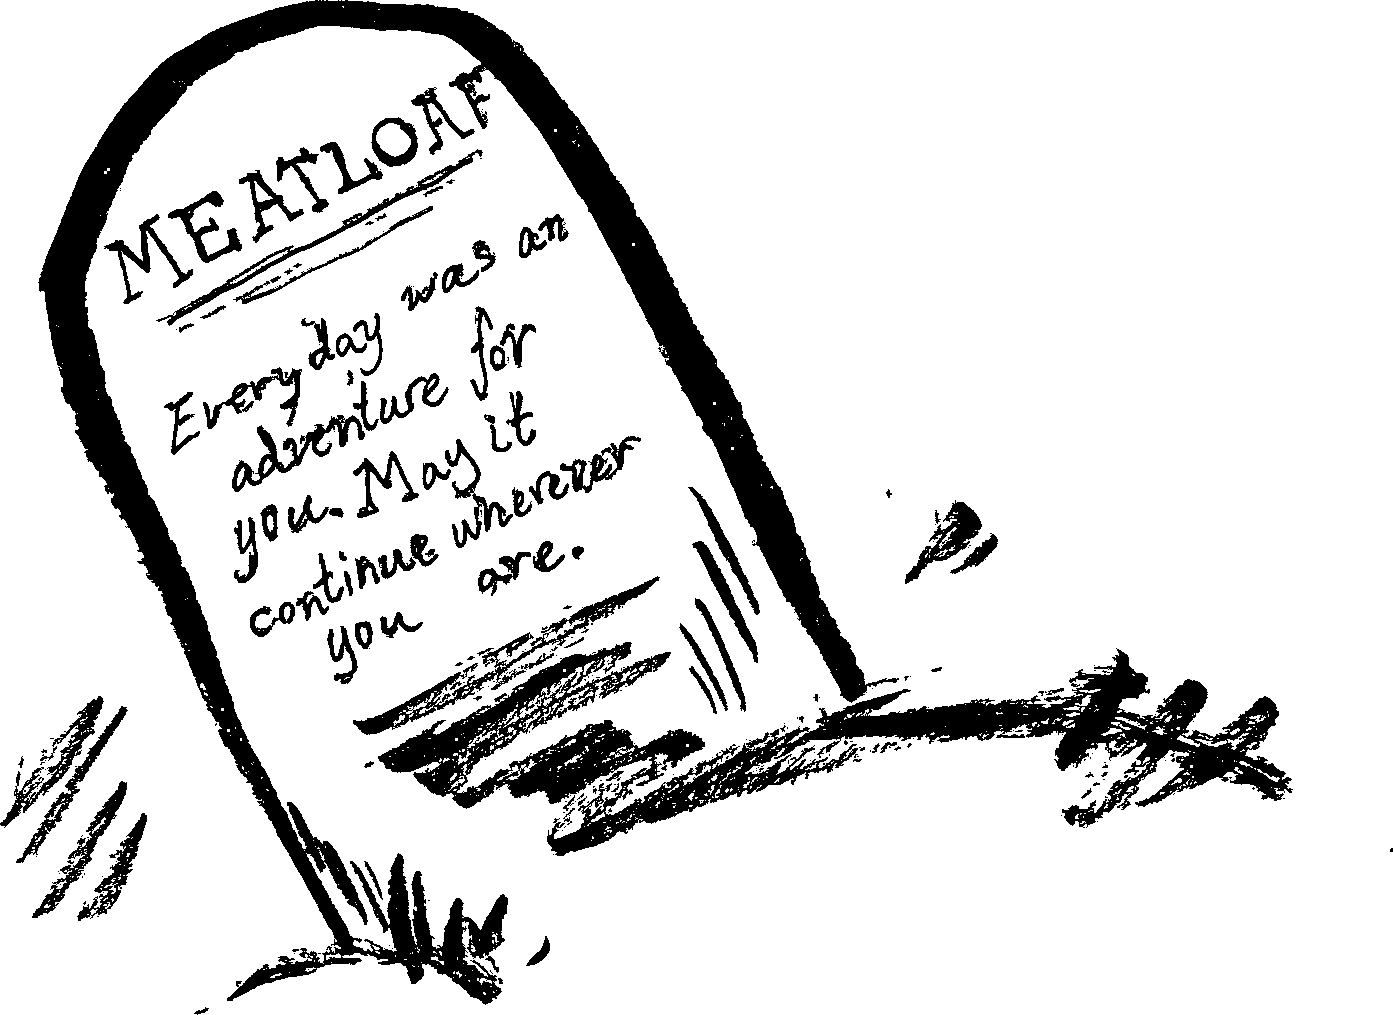 MEATLOAF
Every day was an
adventure for
you. May it
continue wherever
you are.